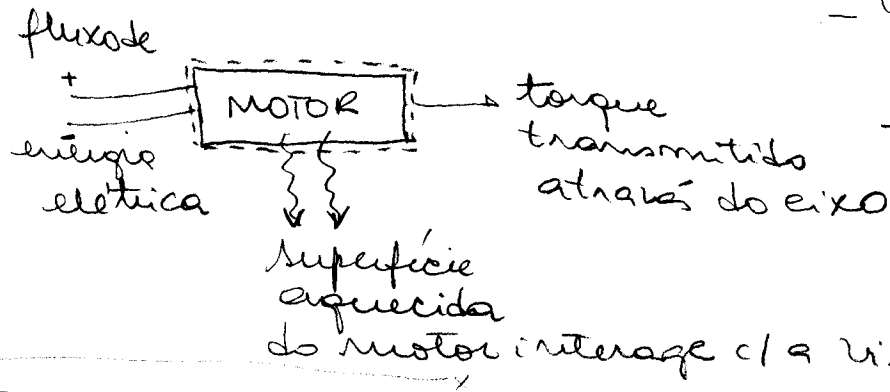 fluxo de
+
MOTOR
energia
elétrica
torque
transmitido
através do eixo
superfície
aquecida
do motor interage c/ a